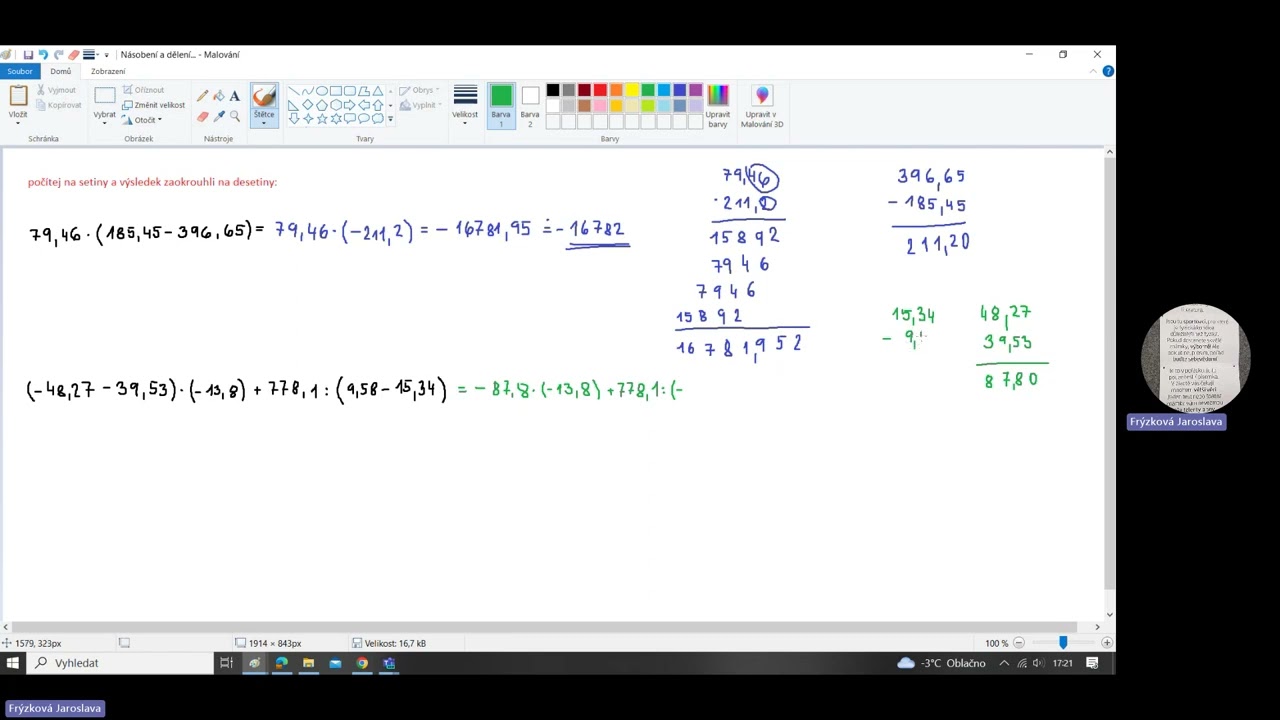 Násobení a dělení... - Malování
Soubor Domů Zobrazení
Vložit Vyjmout Kopírovat
Schránka
Vybrat Oříznout Změnit velikost Otočit
Obrázek
A
Nástroje
Štětce
Obrys Vyplnit
Tvary
Velikost
Barva 1
Barva 2
Upravit barvy
Barvy
Upravit v Malování 3D
počítej na setiny a výsledek zaokrouhli na desetiny:
79,46 · (185,45 - 396,65) = 79,46 · (-211,2) = - 16781,95 ≐ - 16782
79,46
· 211,2
15892
7946
7946
15892
16781,952
396,65
- 185,45
211,20
15,34
- 9,
48,27
39,53
87,80
(-48,27 - 39,53) · (-13,8) + 778,1 : (9,58 - 15,34) = - 87,8 · (-13,8) + 778,1 : (-
1579, 323px
1914 × 843px
Velikost: 16,7 kB
100 %
Vyhledat
-3°C Oblačno
17:21
Frýzková Jaroslava
Frýzková Jaroslava